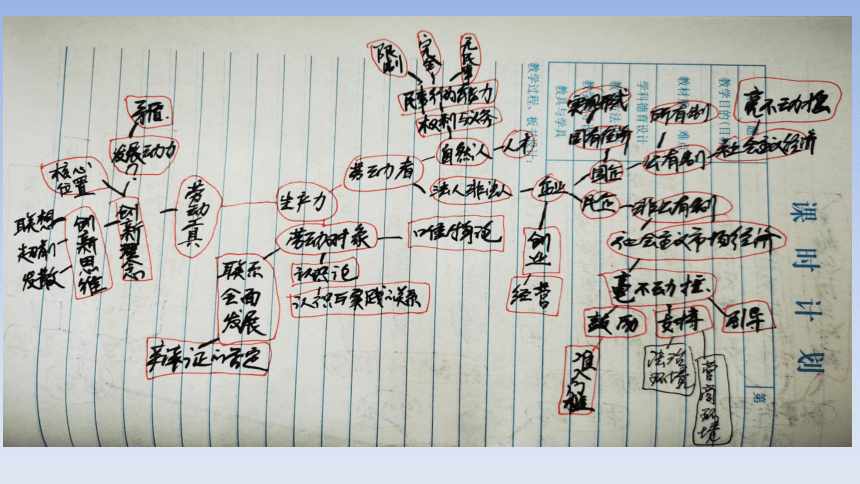 限制
完全
无民事
民事行为能力
权利与义务
自然人
人才
劳动者
法人非法人
生产力
劳动对象
认识论
认识与实践的关系
联系
全面
发展
辩证的否定
劳动
矛盾
发展动力
核心
位置
创新理念
创新思维
联想
发散
企业
创业
经营
国企
民企
实现形式
国有经济
所有制
公有制
社会主义经济
毫不动摇
非公有制
社会主义市场经济
毫不动摇
鼓励
支持
引导
准入门槛
法治
环境
营商环境
课时计划
第
教学目的(目
教材
难点
学科德育设计
教具与学具
教学过程、板书设计：